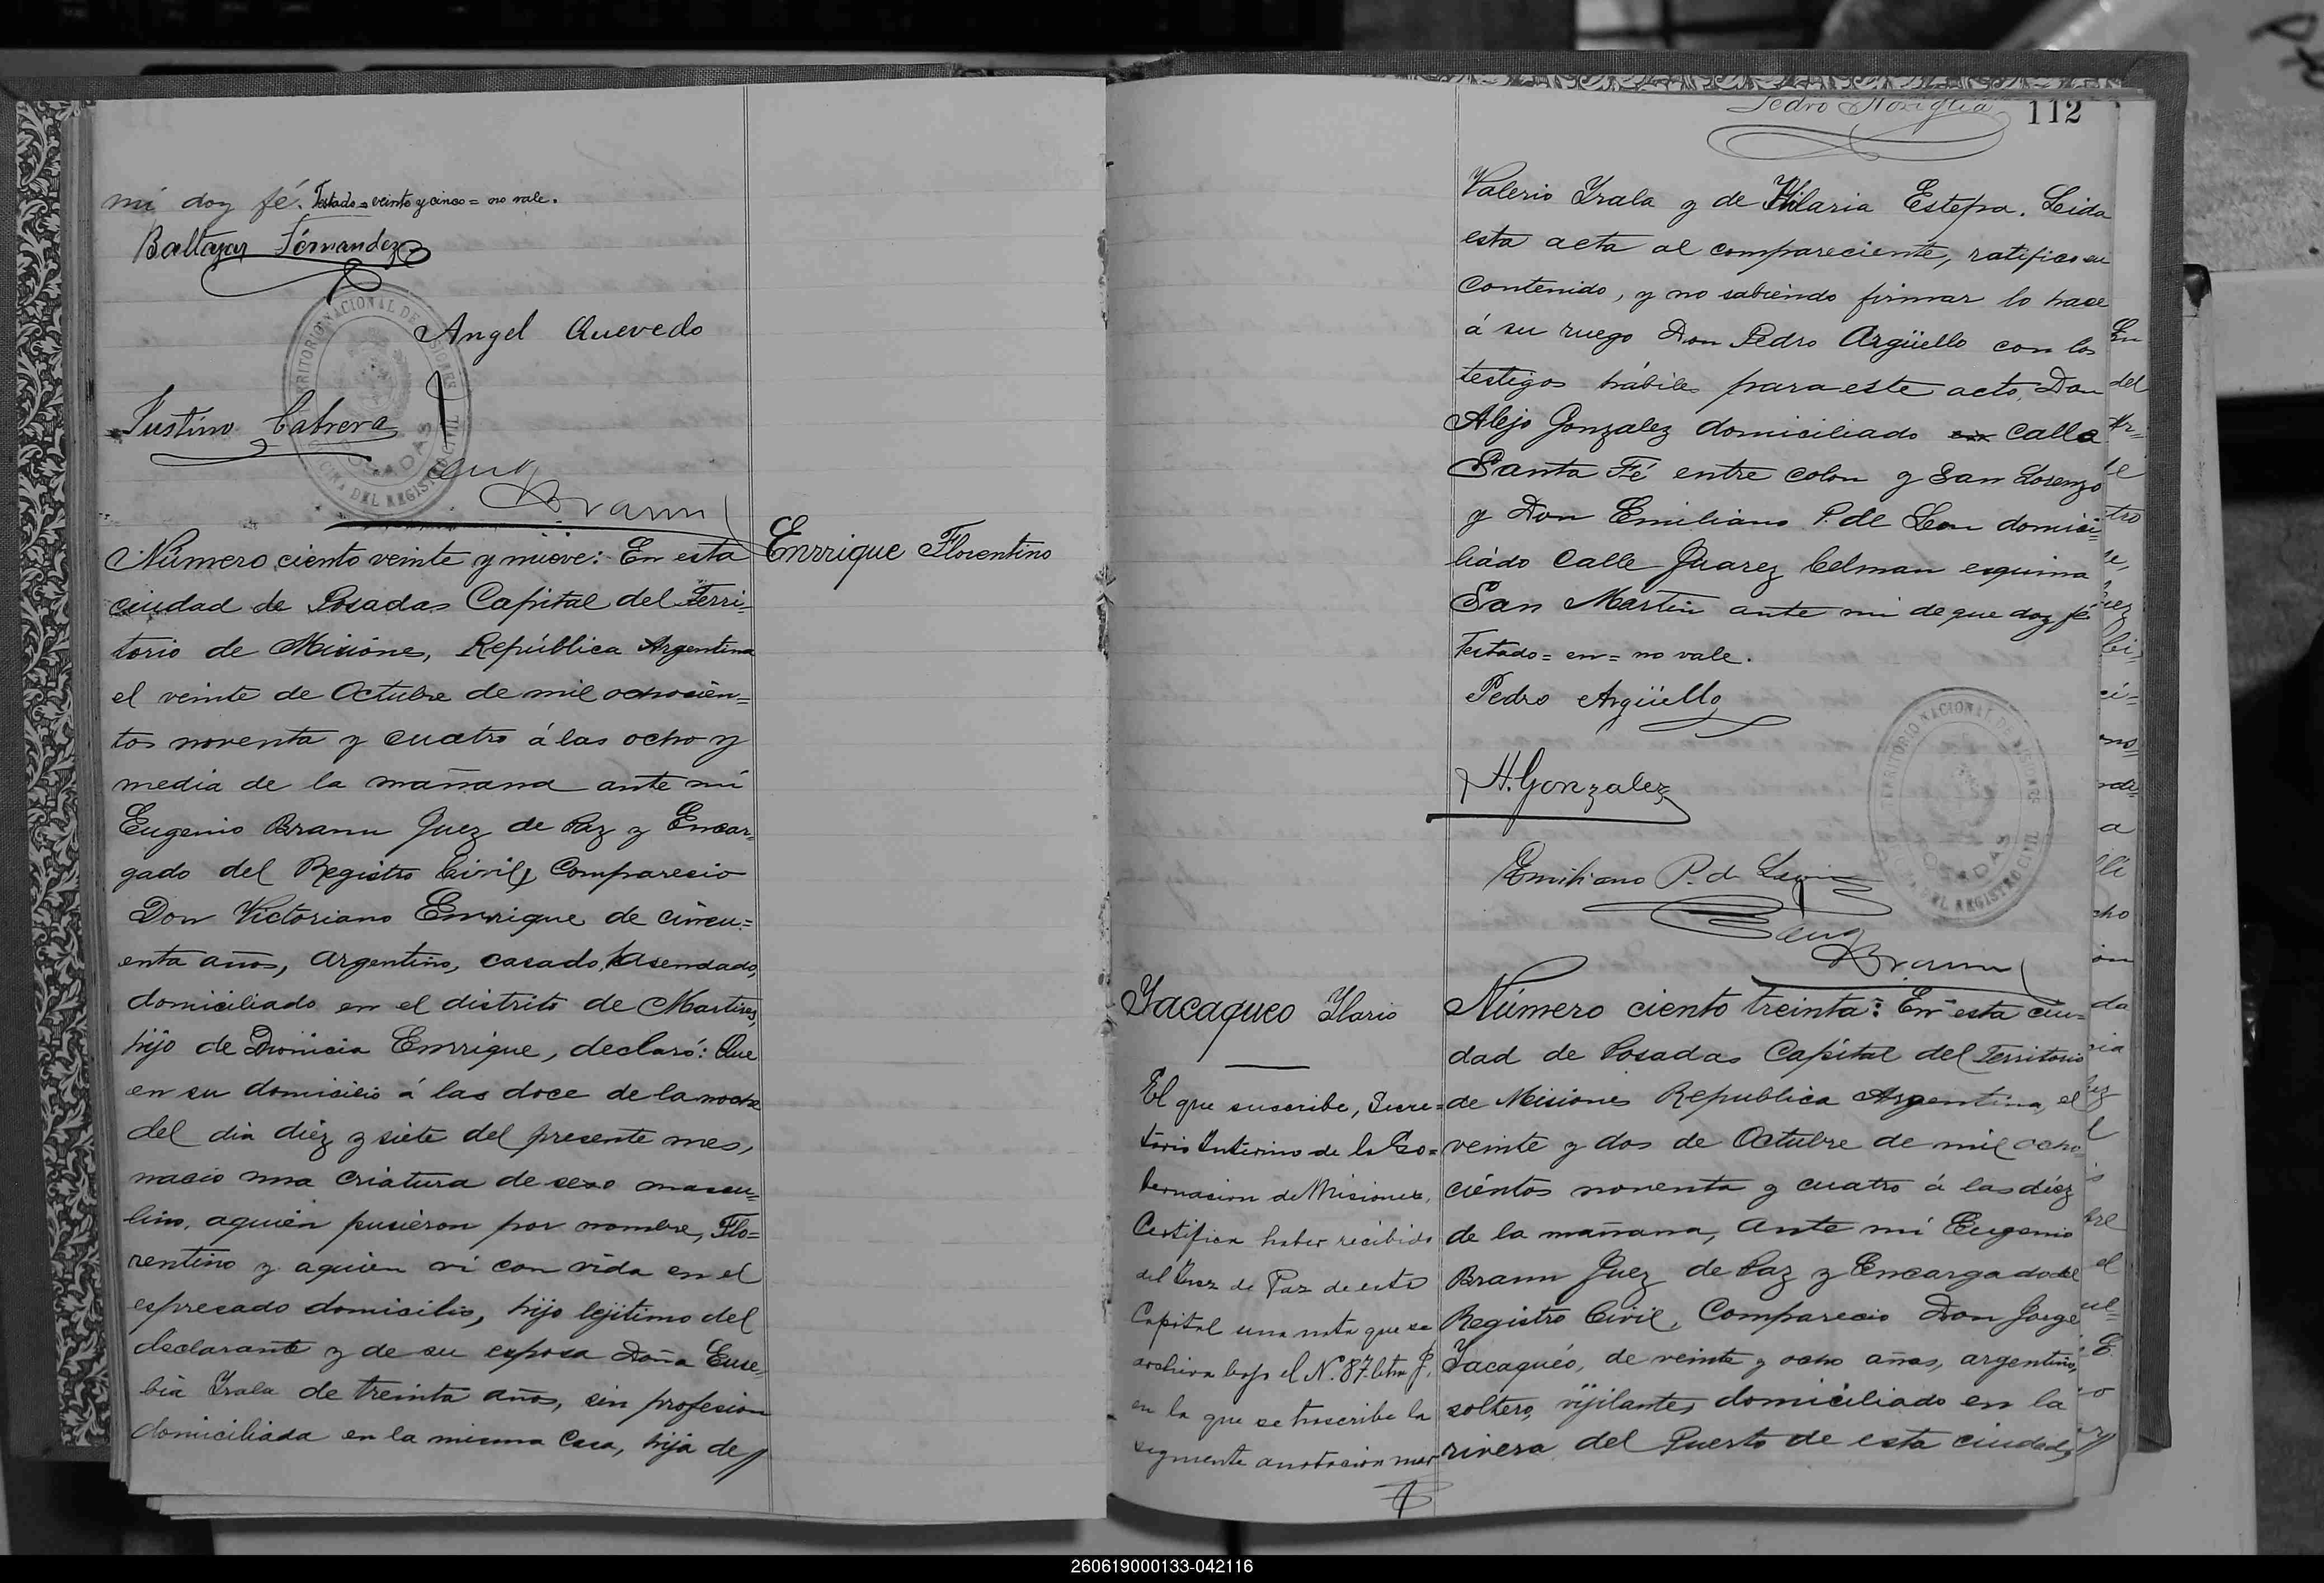 mi doy fé. Testado = veinte y cinco = no vale.
Baltazar Fernandez
Angel Quevedo
Justino Cabrera
Eug Brann
TERRITORIO NACIONAL DE MISIONES
POSADAS
OFICINA DEL REGISTRO CIVIL
Enrrique Florentino
Número ciento veinte y nueve: En esta
ciudad de Posadas Capital del Terri=
torio de Misiones, República Argentina
el veinte de Octubre de mil ochocien=
tos noventa y cuatro á las ocho y
media de la mañana ante mi
Eugenio Brann Juez de Paz y Encar=
gado del Registro Civil, Comparecio
Don Victoriano Enrrique de cincu=
enta años, Argentino, casado, hasendado,
domiciliado en el distrito de Martires,
hijo de Dionicia Enrrique, declaró: Que
en su domicilio á las doce de la noche
del dia diéz y siete del presente mes,
nacio una criatura de sexo mascu=
lino, aquién pusieron por nombre, Flo=
rentino y aquien vi con vida en el
espresado domicilio, hijo lejitimo del
declarante y de su esposa Doña Euse=
bia Yrala de treinta años, sin profesion
domiciliada en la misma Casa, hija de
Pedro Noriglia
112
Valerio Yrala y de Hilaria Estepa. Leida
esta acta al compareciente, ratifico su
contenido, y no sabiendo firmar lo hace
á su ruego Don Pedro Argüello con los
testigos hábiles para este acto, Don
Alejo Gonzalez domiciliado en calle
Santa Fé entre colon y San Lorenzo
y Don Emiliano P. de Leon domici=
liado Calle Juarez Celman esquina
San Martin ante mi de que doy fé
Testado = en = no vale.
Pedro Argüello
A. Gonzalez
Emiliano P. de Leon
Eug Brann
TERRITORIO NACIONAL DE MISIONES
POSADAS
OFICINA DEL REGISTRO CIVIL
Yacaqueo Ylario
El que suscribe, Secre=
tario Interino de la Go=
bernacion de Misiones,
Certifica haber recibido
del Juez de Paz de esta
Capital una nota que se
archiva bajo el N.º 87 letra J.
en la que se trascribe la
seguiente anotacion mar
Número ciento treinta: En esta ciu=
dad de Posadas Capital del Territorio
de Misiones Republica Argentina, el
veinte y dos de Octubre de mil ocho
cientos noventa y cuatro á las diéz
de la mañana, ante mi Eugenio
Brann Juez de Paz y Encargado del
Registro Civil, Comparecio Don Jorge
Yacaquéo, de veinte y ocho años, argentino,
soltero, vijilante, domiciliado en la
rivera del Puerto de esta ciudad,
260619000133-042116